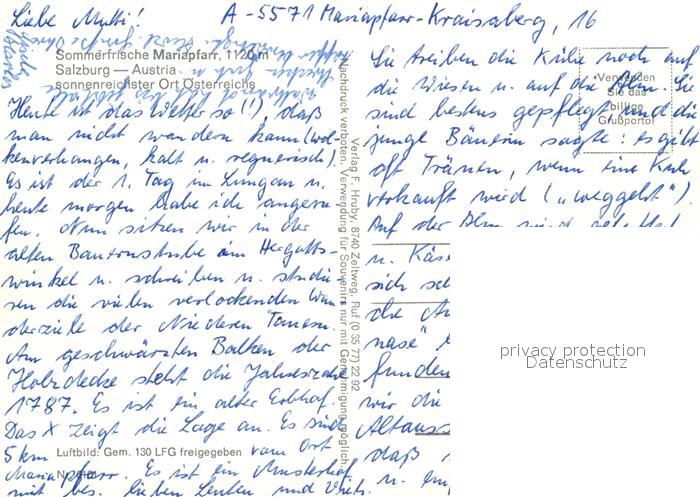 Liebe Mutti!
A-5571 Mariapfarr-Kraisaberg, 16
Sommerfrische Mariapfarr, 1120 m
Salzburg — Austria
sonnenreichster Ort Österreichs
Heute ist das Wetter so (!), daß
man nicht wandern kann (wol-
kenverhangen, kalt u. regnerisch).
Es ist der 1. Tag im Lungau u.
heute morgen habe ich angeru-
fen. Nun sitzen wir in der
alten Bauernstube im Hergotts-
winkel u. schreiben u. studie-
ren die vielen verlockenden Wan-
derziele der Niederen Tauern.
Am geschwärzten Balken der
Holzdecke steht die Jahreszahl
1787. Es ist ein alter Erbhof.
Das X zeigt die Lage an. Es sind
5 km vom Ort
Luftbild: Gem. 130 LFG freigegeben
Mariapfarr. Es ist ein Musterhof
mit bes. lieben Leuten und
Nachdruck verboten. Verwendung für Souvenirs nur mit Genehmigung möglich.
Verlag F. Hruby, 8740 Zeltweg, Ruf (0 35 77) 22 92
Sie treiben die Kühe noch auf
die Wiesen u. auf die Alm. Sie
sind bestens gepflegt und die
junge Bäuerin sagte: es gibt
oft Tränen, wenn eine Kuh
verkauft wird („weggeht").
Auf der Alm wird
Verwenden
Sie das
billige
Grußporto!
u. Käs
sich
die
nase"
funden
wir die
Altauss
daß
u.
privacy protection
Datenschutz